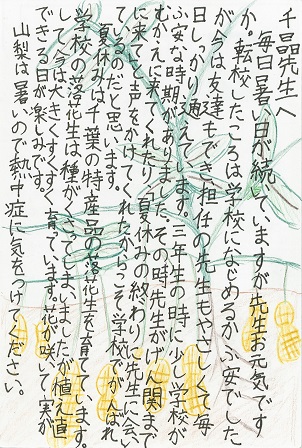 千晶先生へ
毎日暑い日が続いていますが先生お元気です
か。転校したころは学校になじめるかふ安でした
が今は友達もでき担任の先生もやさしくて毎
日しっかり通えています。三年生の時に少し学校が
ふ安な時期がありました。その時先生がげん関まで
むかえに来てくれたり、夏休みの終わりに先生に会い
に来てと声をかけてくれたからこそ学校でがんばれ
ているのだと思います。
夏休みは千葉の特産品の落花生を育てています。
学校の落花生は種がくさってしまいましたが植え直
して今は大きくすくすく育ています。花が咲いて実が
できる日が楽しみです。
山梨は暑いので熱中症に気をつけください。